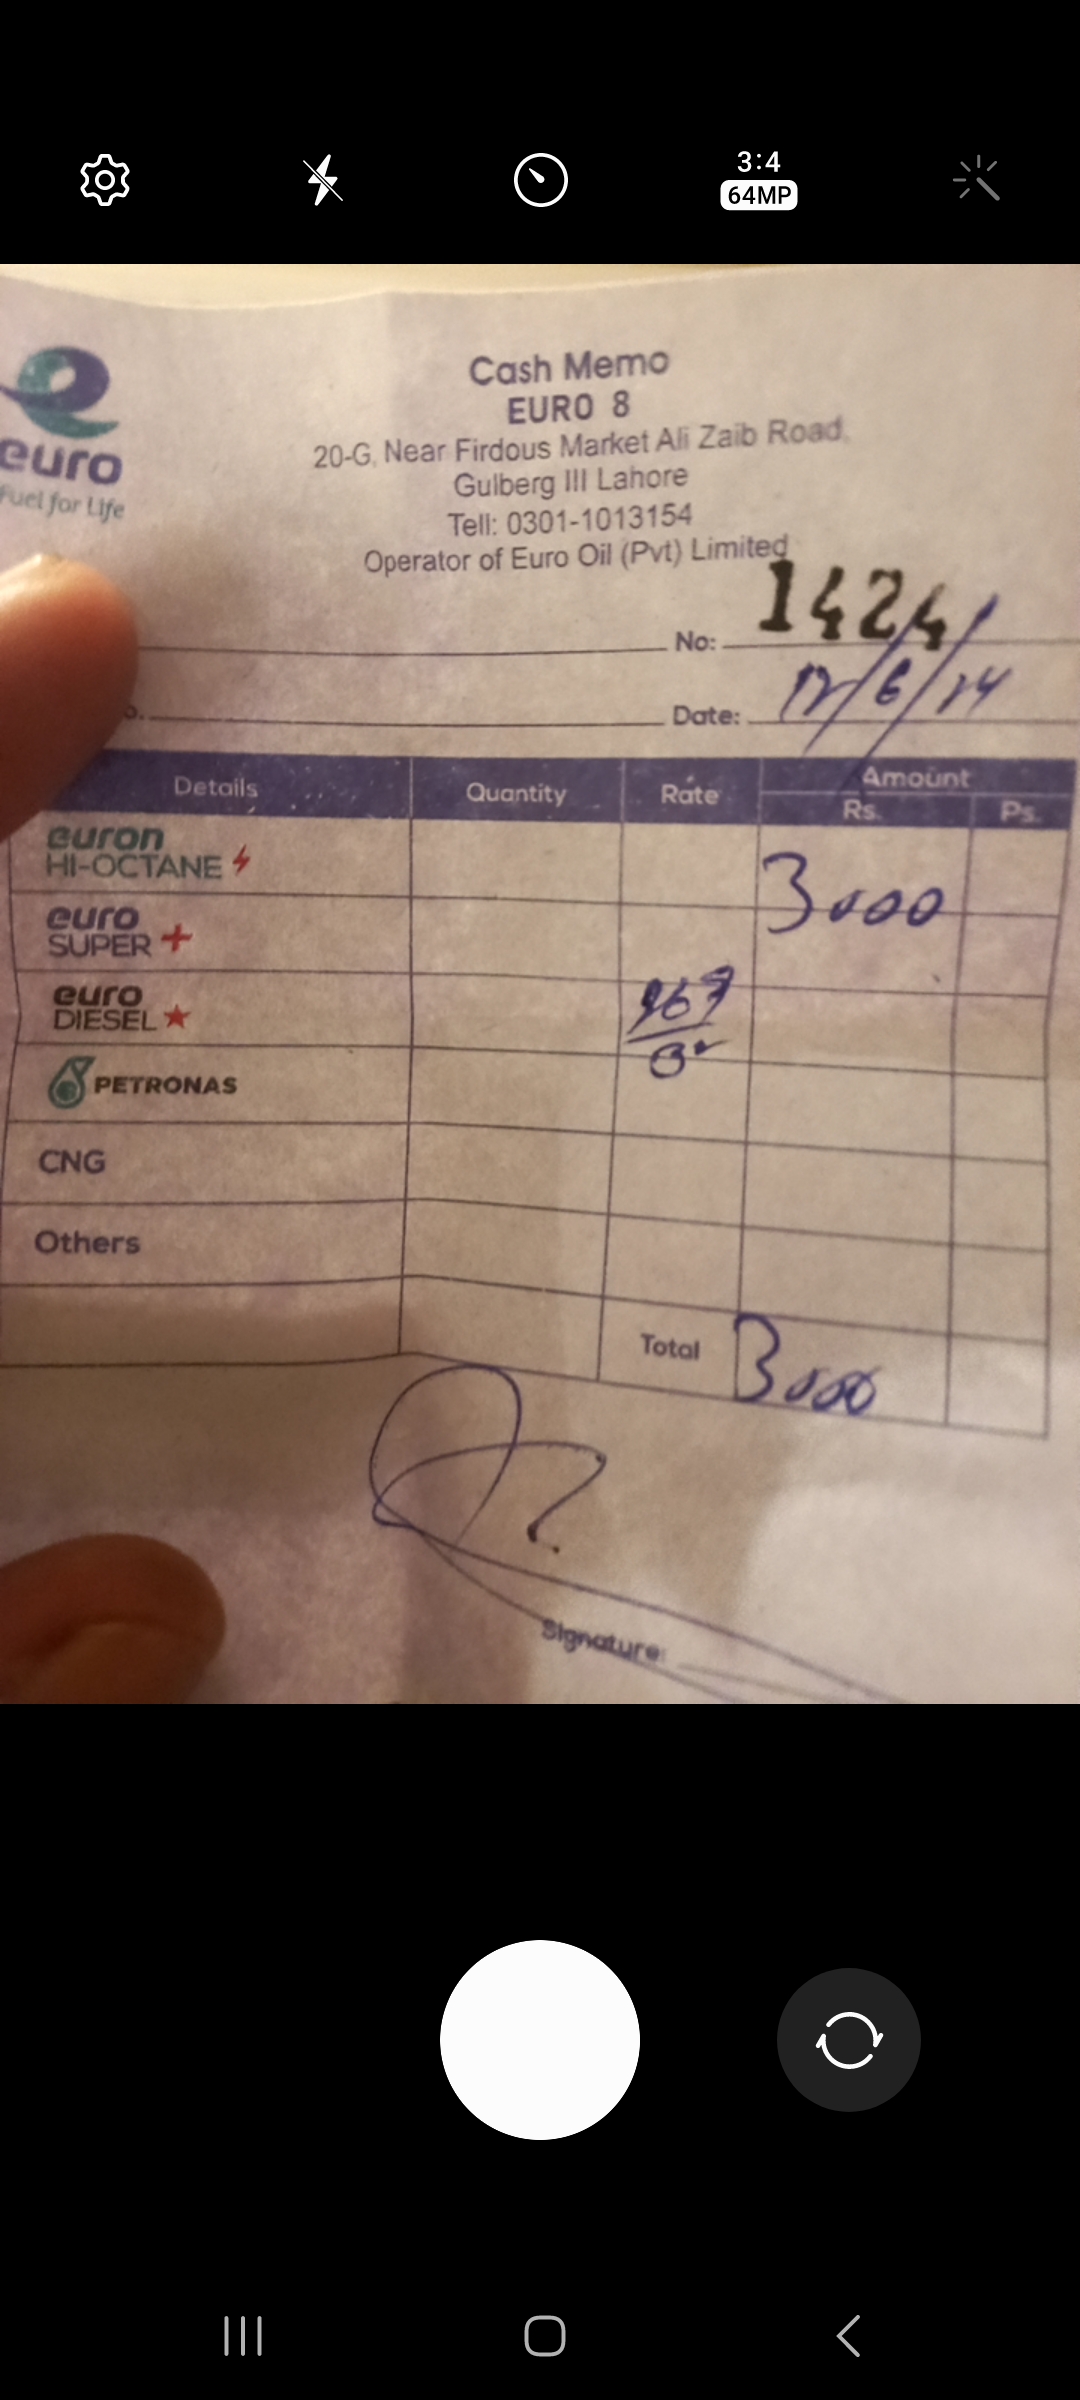 3:4
64MP
Cash Memo
EURO 8
euro
Fuel for Life
20-G, Near Firdous Market Ali Zaib Road,
Gulberg III Lahore
Tell: 0301-1013154
Operator of Euro Oil (Pvt) Limited
No: 1424
Date: 12/6/24
Details Quantity Rate Amount
Rs. Ps.
euron
HI-OCTANE
3000
euro
SUPER
euro
DIESEL
PETRONAS
CNG
Others
Total 3000
Signature: